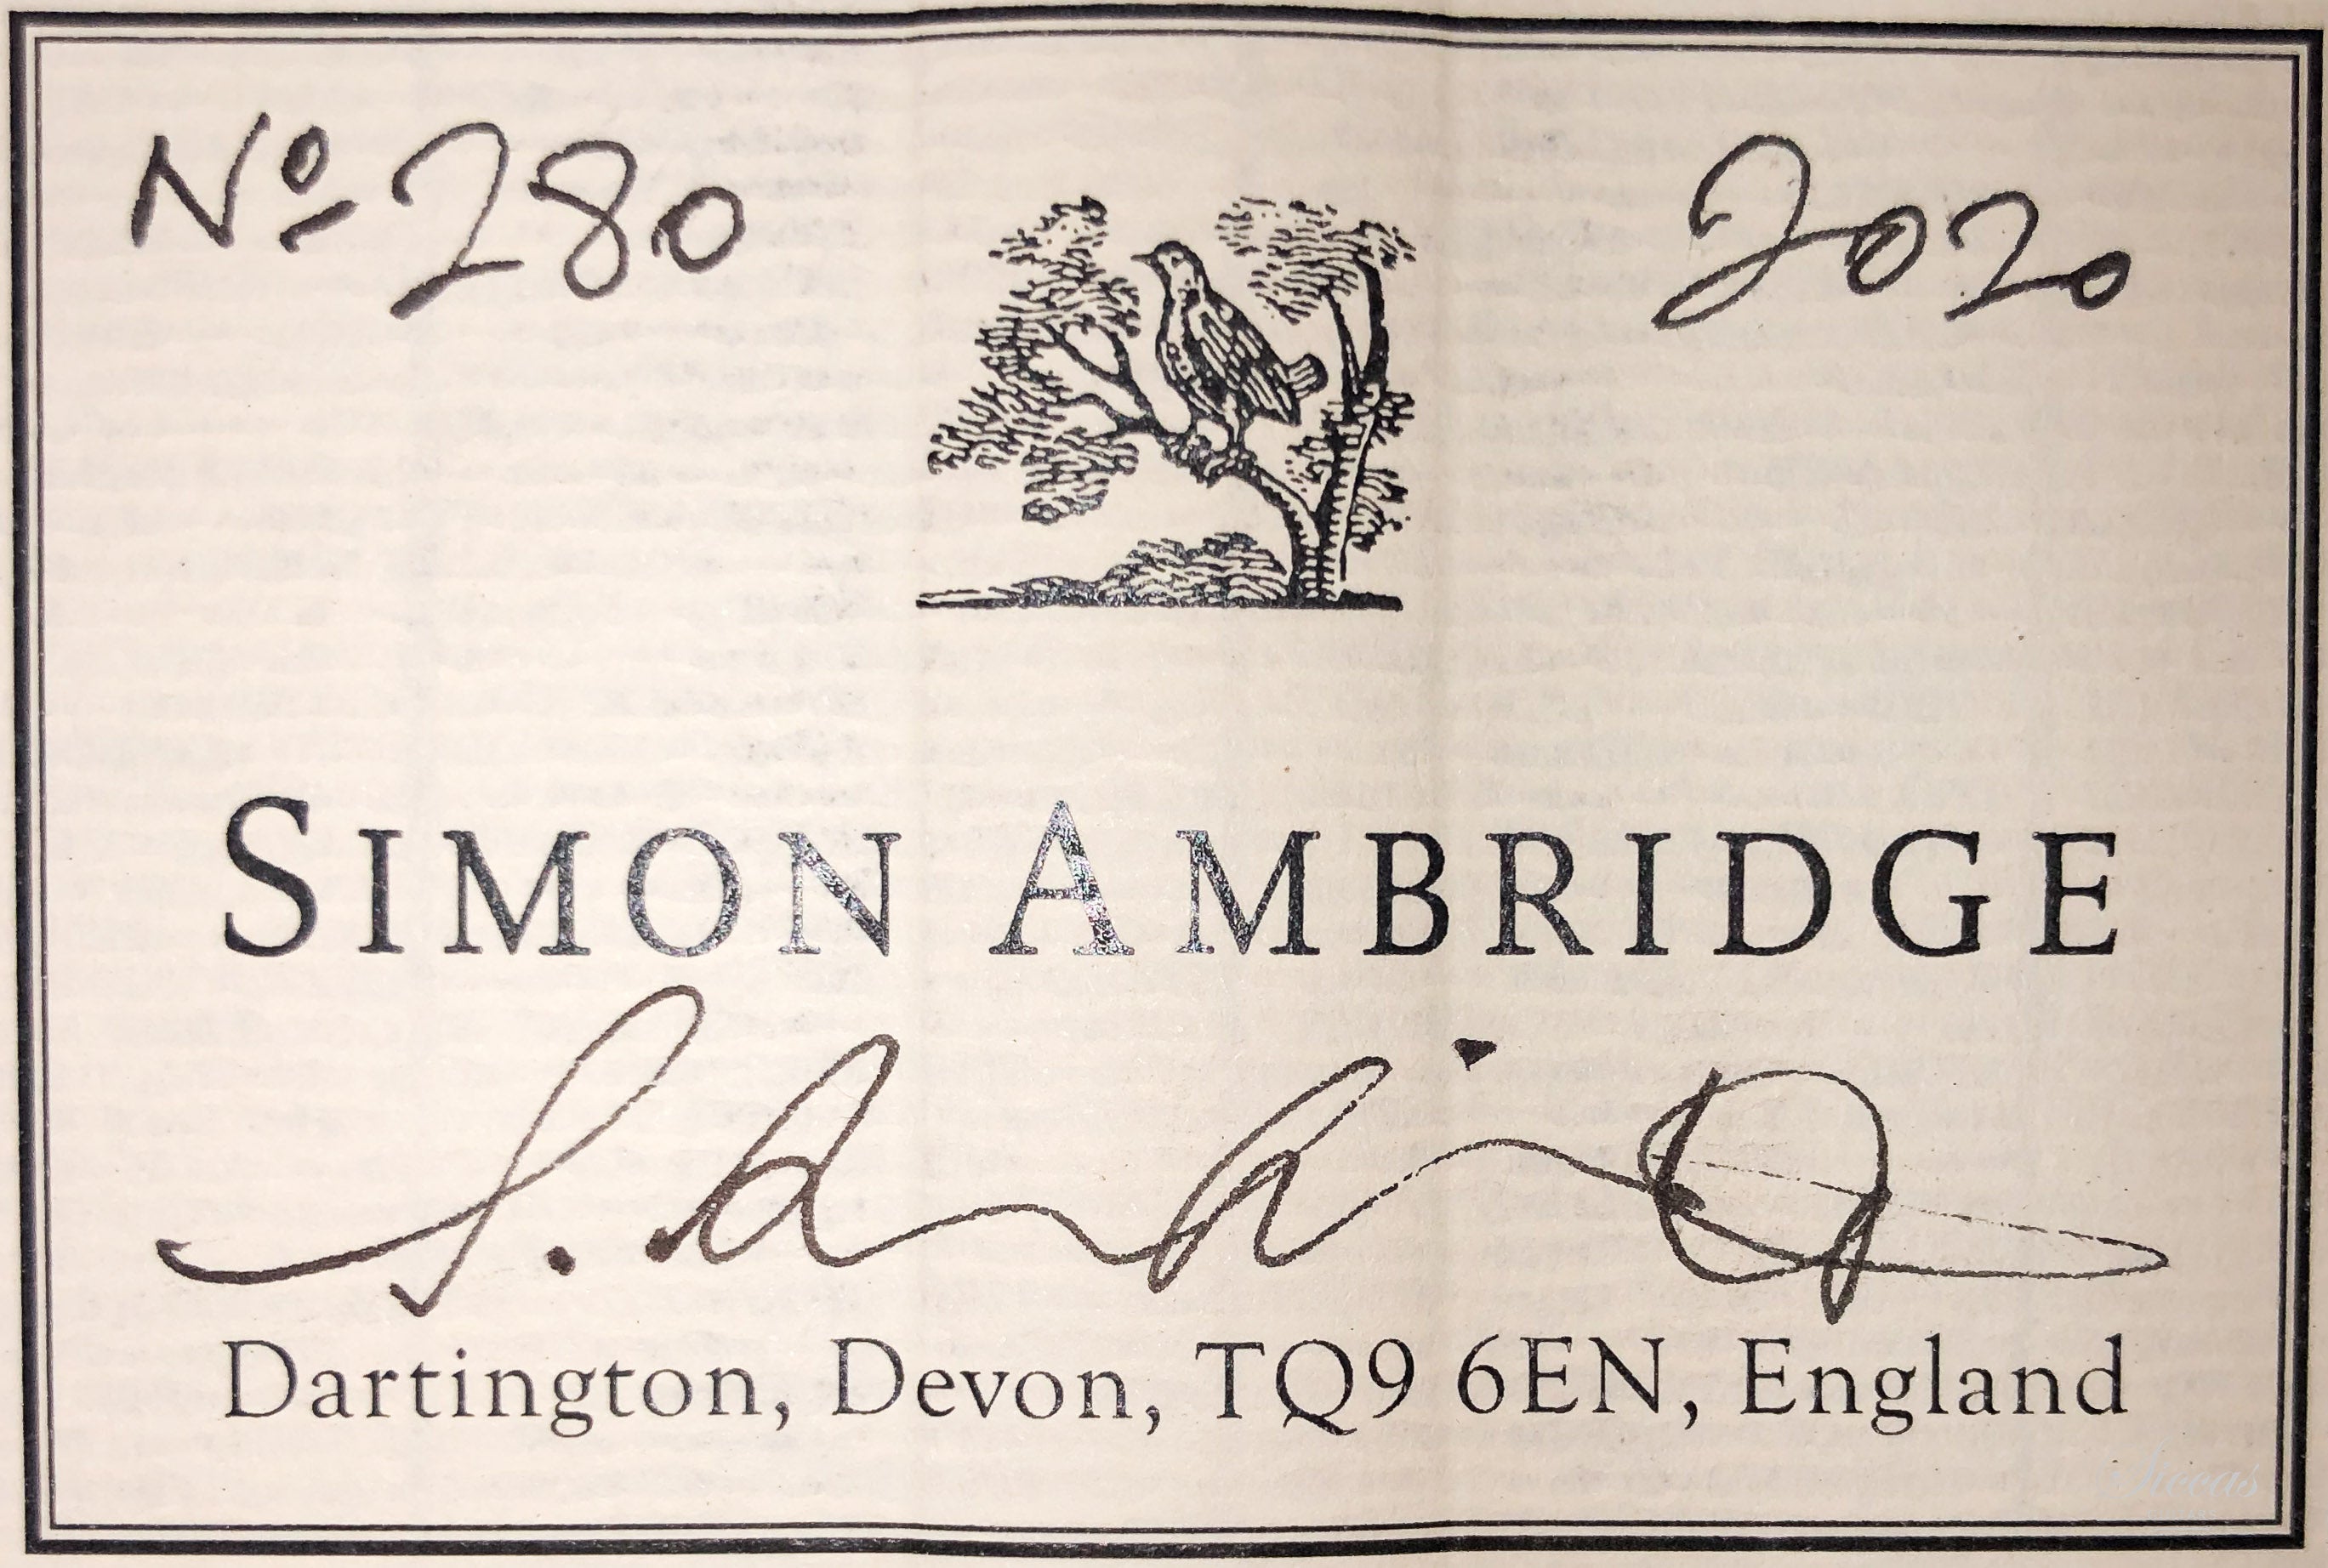 Nº 280 2020
SIMON AMBRIDGE
S. Ambridge
Dartington, Devon, TQ9 6EN, England
Siccas